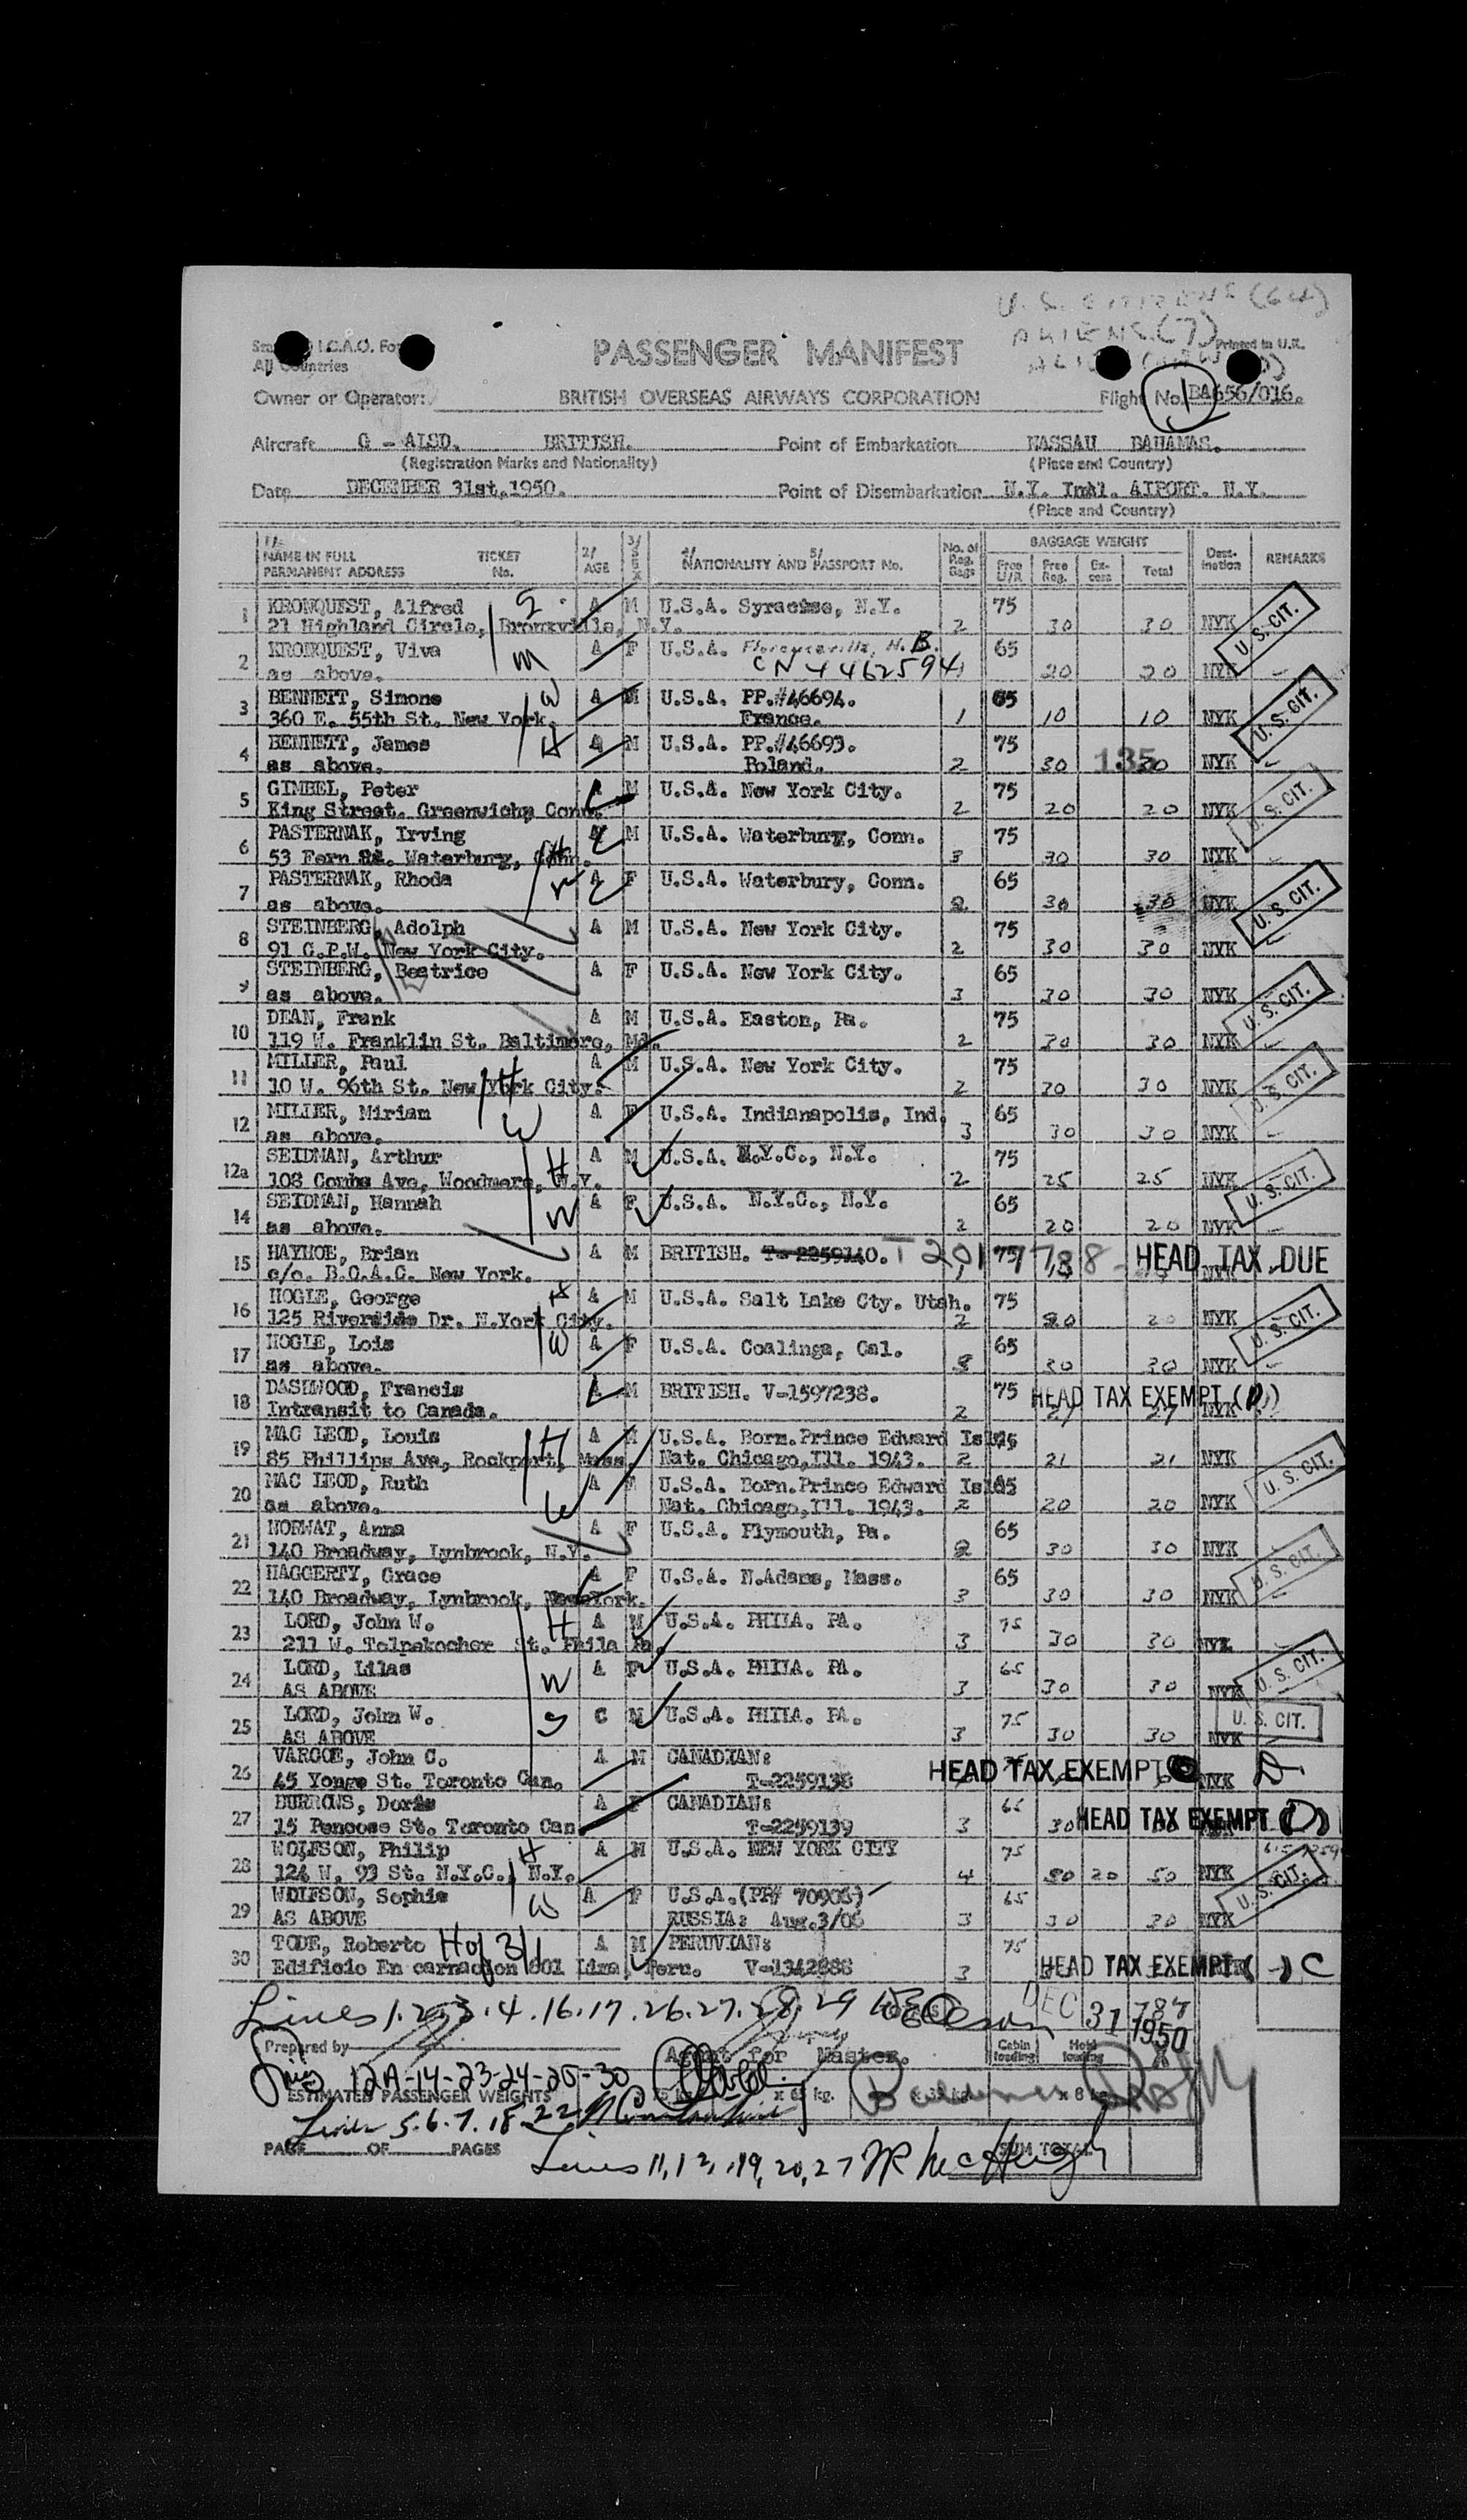 U.S. CITIZENS (64)
ALIENS (7)
I.C.A.O. For
All Countries
PASSENGER MANIFEST
Printed in U.K.
Owner or Operator: BRITISH OVERSEAS AIRWAYS CORPORATION Flight No. BA656/016.
1
Aircraft G - ALSD. BRITISH. Point of Embarkation NASSAU BAHAMAS.
(Registration Marks and Nationality) (Place and Country)
Date DECEMBER 31st.1950. Point of Disembarkation N.Y. Intl. AIPORT. N.Y.
(Place and Country)
1/ NAME IN FULL TICKET 2/ 3/ 4/ 5/ No. of BAGGAGE WEIGHT
PERMANENT ADDRESS No. AGE SEX NATIONALITY AND PASSPORT No. Reg. Bags Free U/R Free Reg. Ex-cess Total Dest-ination REMARKS
1 KRONQUEST, Alfred A M U.S.A. Syracuse, N.Y. 75
21 Highland Circle, Bronxville, N.Y. 2 30 30 NYK U.S. CIT.
2 KRONQUEST, Viva A F U.S.A. Florenceville, N.B. 65
as above. CN 4462594 20 20 NYK
3 BENNETT, Simone W A M U.S.A. PP.#46694. 65
360 E. 55th St. New York. France. 1 10 10 NYK U.S. CIT.
4 BENNETT, James H A M U.S.A. PP.#46693. 75
as above. Poland. 2 30 135 30 NYK
5 GIMBEL, Peter A M U.S.A. New York City. 75
King Street. Greenwich, Conn. 2 20 20 NYK U.S. CIT.
6 PASTERNAK, Irving A M U.S.A. Waterbury, Conn. 75
53 Fern St. Waterbury, Conn. H 3 30 30 NYK
7 PASTERNAK, Rhoda W A F U.S.A. Waterbury, Conn. 65
as above. 2 30 30 NYK U.S. CIT.
8 STEINBERG, Adolph A M U.S.A. New York City. 75
91 C.P.W. New York City. 2 30 30 NYK
9 STEINBERG, Beatrice A F U.S.A. New York City. 65
as above. W 3 30 30 NYK U.S. CIT.
10 DEAN, Frank A M U.S.A. Easton, Pa. 75
119 W. Franklin St. Baltimore, Md. 2 30 30 NYK
11 MILLER, Paul A M U.S.A. New York City. 75
10 W. 96th St. New York City. H 2 30 30 NYK U.S. CIT.
12 MILLER, Miriam W A F U.S.A. Indianapolis, Ind. 65
as above. 3 30 30 NYK
12a SEIDMAN, Arthur H A M U.S.A. N.Y.C., N.Y. 75
108 Combs Ave, Woodmere, N.Y. 2 25 25 NYK U.S. CIT.
14 SEIDMAN, Hannah W A F U.S.A. N.Y.C., N.Y. 65
as above. 2 20 20 NYK
15 HAYHOE, Brian A M BRITISH. T-2259140. T2011788 75 HEAD TAX DUE
c/o. B.O.A.C. New York. NYK
16 HOGLE, George H A M U.S.A. Salt Lake Cty. Utah. 75
125 Riverside Dr. N.York City. 2 20 20 NYK U.S. CIT.
17 HOGLE, Lois W A F U.S.A. Coalinga, Cal. 65
as above. 3 30 30 NYK
18 DASHWOOD, Francis A M BRITISH. V-1597238. 75 HEAD TAX EXEMPT (D)
Intransit to Canada. 2 27 27 NYK
19 MAC LEOD, Louis H A M U.S.A. Born.Prince Edward Isld. 75
85 Phillips Ave, Rockport, Mass. Nat. Chicago,Ill. 1943. 2 21 21 NYK
20 MAC LEOD, Ruth A F U.S.A. Born.Prince Edward Isld. 65 U.S. CIT.
as above. W Nat. Chicago,Ill. 1943. 2 20 20 NYK
21 NORWAT, Anna A F U.S.A. Plymouth, Pa. 65
140 Broadway, Lynbrook, N.Y. 2 30 30 NYK
22 HAGGERTY, Grace A F U.S.A. N.Adams, Mass. 65 U.S. CIT.
140 Broadway, Lynbrook, New York. 3 30 30 NYK
23 LORD, John W. H A M U.S.A. PHILA. PA. 75
211 W. Tulpehocher St. Phila Pa. 3 30 30 NYK
24 LORD, Lilas W A F U.S.A. PHILA. PA. 65 U.S. CIT.
AS ABOVE 3 30 30 NYK
25 LORD, John W. S C M U.S.A. PHILA. PA. 75 U.S. CIT.
AS ABOVE 3 30 30 NYK
26 VARCOE, John C. A M CANADIAN: HEAD TAX EXEMPT D
45 Yonge St. Toronto Can. T-2259138 NYK
27 BURROWS, Doris A F CANADIAN: 65
15 Pencose St. Toronto Can T-2259139 3 30 HEAD TAX EXEMPT (D)
28 WOLFSON, Philip H A M U.S.A. NEW YORK CITY 75
124 W. 93 St. N.Y.C., N.Y. 4 30 20 50 NYK
29 WOLFSON, Sophie W A F U.S.A.(PP# 70908) 65 U.S. CIT.
AS ABOVE RUSSIA: Aug.3/06 3 30 30 NYK
30 TODE, Roberto H of 31 A M PERUVIAN: 75
Edificio En carnacion 801 Lima, Peru. V-1342888 3 HEAD TAX EXEMPT ( ) C
Lines 1.2.3.4.16.17.26.27.28.29 DEC 31 1950 787
Prepared by Agent for Master. Cabin loading Hold loading
Lines 12A-14-23-24-25-30
ESTIMATED PASSENGER WEIGHTS x 65 kg. x 8 kg.
Lines 5.6.7.18.22
PAGE OF PAGES SUM TOTAL
Lines 11,12,19,20,27 JR McHugh